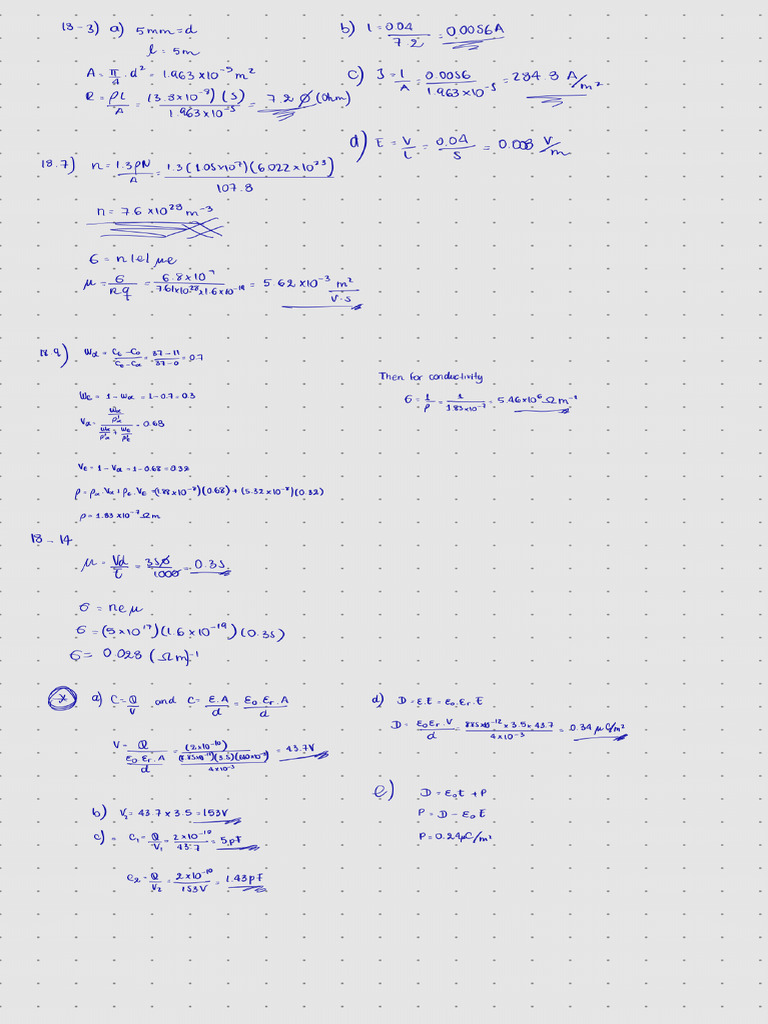 18-3) a) 5mm=d
l = 5m
A = π/4 · d² = 1.963×10⁻⁵ m²
R = ρL/A = (3.8×10⁻⁷)(5)/1.963×10⁻⁵ = 7.2 Ω (Ohm)
b) I = 0.04/7.2 = 0.0056A
c) J = I/A = 0.0056/1.963×10⁻⁵ = 284.8 A/m²
d) E = V/L = 0.04/5 = 0.008 V/m
18.7) n = 1.3ρN/A = 1.3(1.05×10⁷)(6.022×10²³)/107.8
n = 7.6×10²⁸ m⁻³
σ = n|e|μe
μ = σ/nq = 6.8×10⁷/7.61×10²⁸×1.6×10⁻¹⁹ = 5.62×10⁻³ m²/V·s
18.9) Wα = Cε-C₀/Cε-Cα = 37-11/37-0 = 0.7
Wε = 1-Wα = 1-0.7=0.3
Vα = Wα/ρ'α / Wα/ρ'α + Wε/ρ'ε = 0.68
Vε = 1-Vα = 1-0.68 = 0.32
ρ = ρα·Vα + ρε·Vε = (1.88×10⁻⁷)(0.68)+(5.32×10⁻⁷)(0.32)
ρ = 1.83×10⁻⁷ Ωm
Then for conductivity
σ = 1/ρ = 1/1.83×10⁻⁷ = 5.46×10⁶ Ωm⁻¹
18-14
μ = Vd/E = 350/1000 = 0.35
σ = neμ
σ = (5×10¹⁷)(1.6×10⁻¹⁹)(0.35)
σ = 0.028 (Ωm)⁻¹
* a) C = Q/V and C = ε.A/d = ε₀.εr.A/d
V = Q / ε₀.εr.A/d = (2×10⁻¹⁰) / (8.85×10⁻¹²)(3.5)(
/4×10⁻³ = 43.7V
b) V₂ = 43.7 × 3.5 = 153V
c) = C₁ = Q/V₁ = 2×10⁻¹⁰/43.7 = 5pF
C₂ = Q/V₂ = 2×10⁻¹⁰/153V = 1.43pF
d) D = ε.E = ε₀.εr.E
D = ε₀εr.V/d = 8.85×10⁻¹²×3.5×43.7/4×10⁻³ = 0.34 μC/m²
e) D = ε₀E + P
P = D - ε₀E
P = 0.24μC/m²